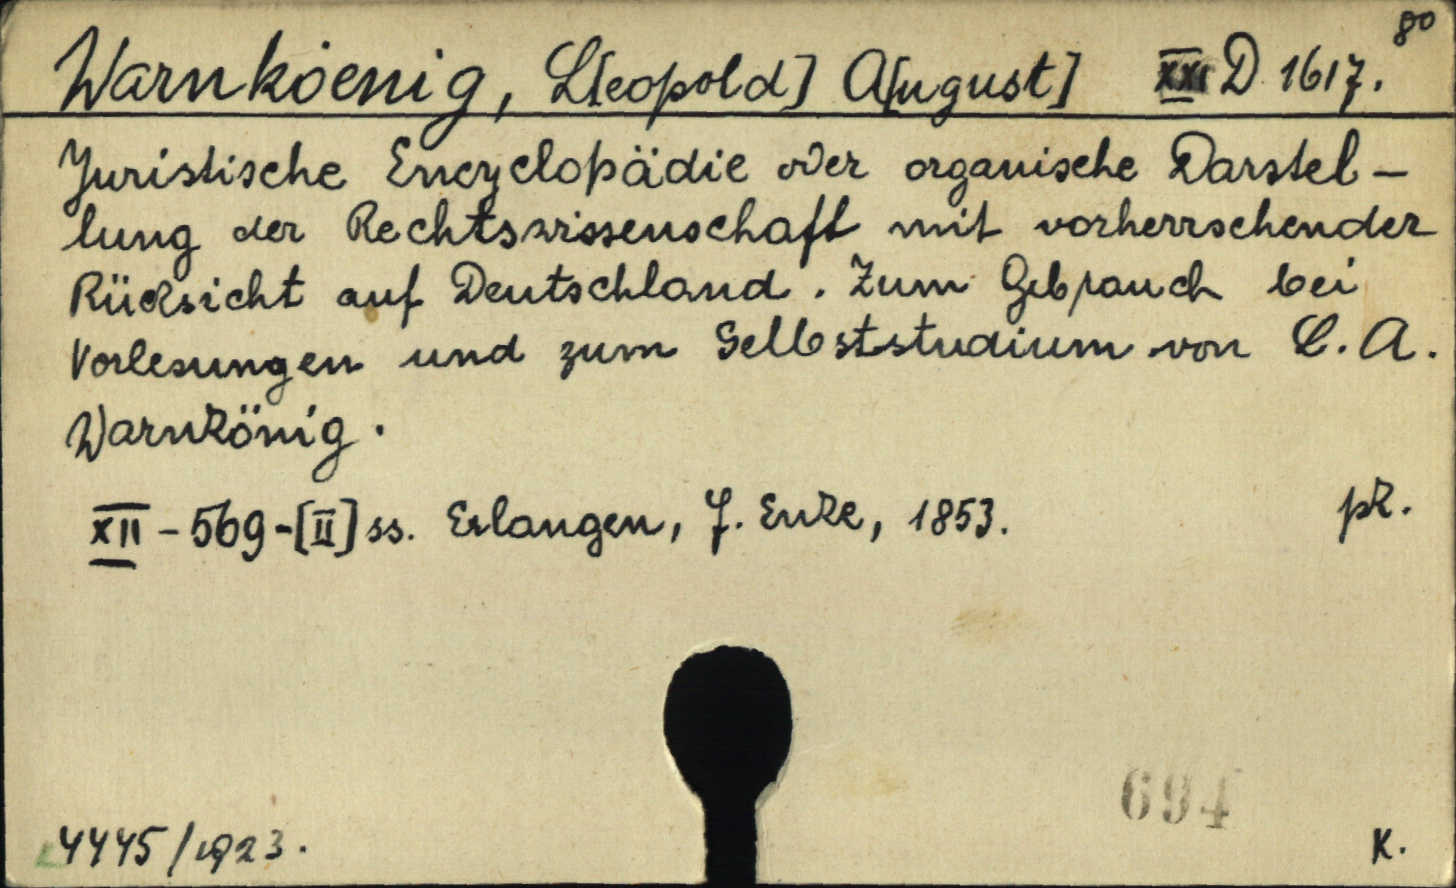 Warnkoenig, L[eopold] A[ugust] XXI D 1617. 8º
Juristische Encyclopädie oder organische Darstel-
lung der Rechtswissenschaft mit vorherrschender
Rücksicht auf Deutschland. Zum Gebrauch bei
Vorlesungen und zum Selbststudium von L. A.
Warnkönig.
XII - 569 - [II] ss. Erlangen, F. Enke, 1853. pk.
694
4445/1923. K.